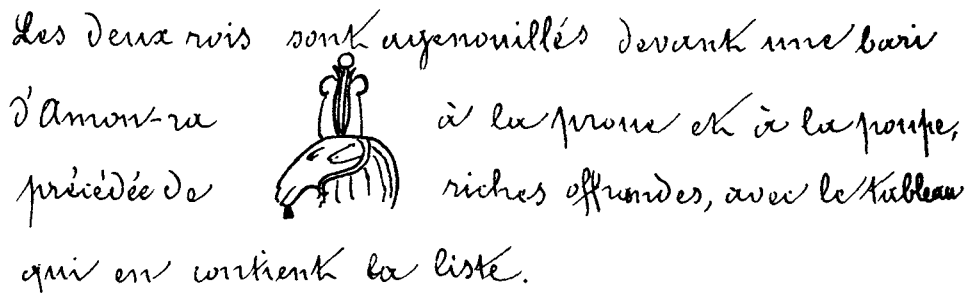 Les deux rois sont agenouillés devant une bari
d'Amon-ra à la proue et à la poupe,
précédée de riches offrandes, avec le tableau
qui en contient la liste.